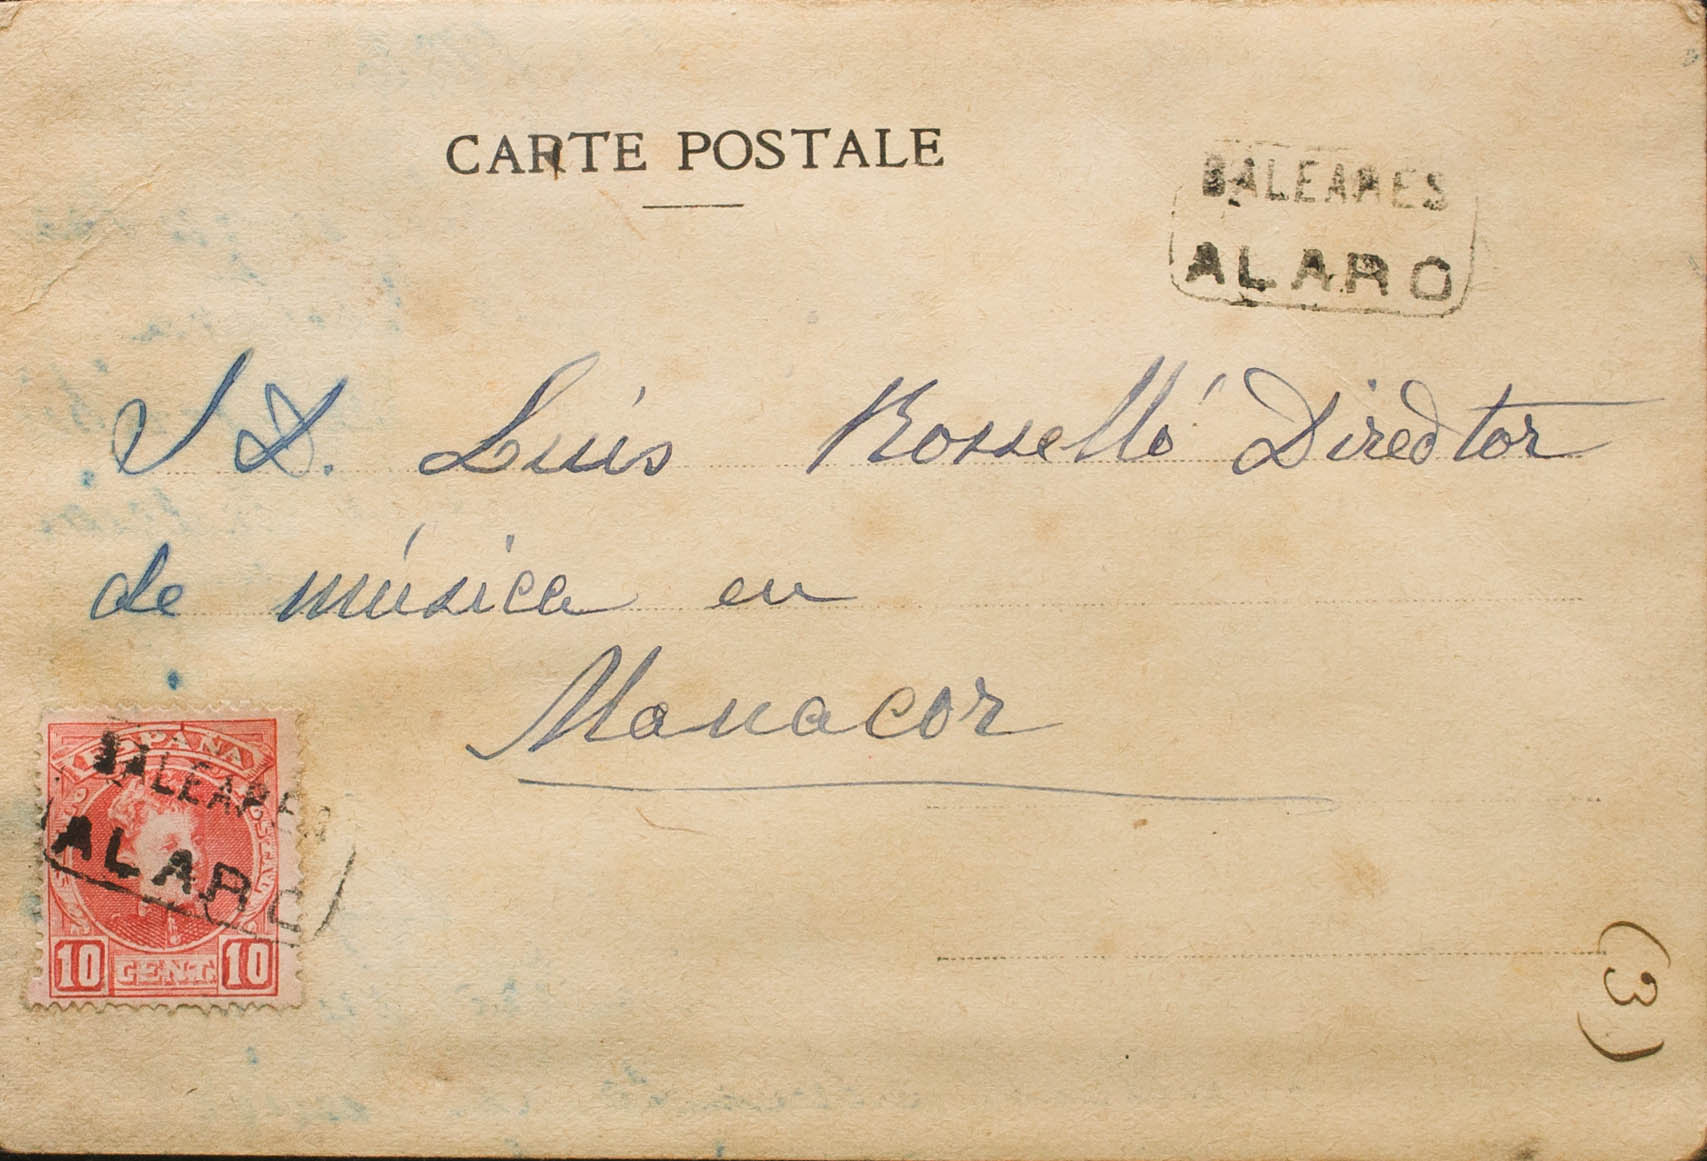 CARTE POSTALE
BALEARES
ALARO
S D. Luís Rosselló Director
de música en
Manacor
ESPAÑA
BALEARES
ALARO
10 CENT. 10
(3)